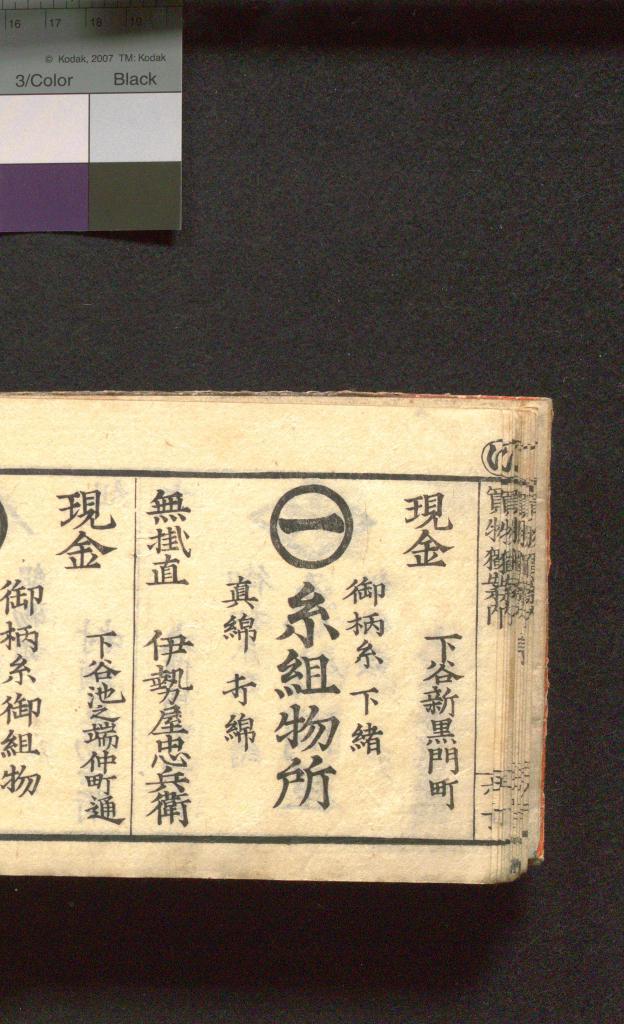 16 17 18 19
© Kodak, 2007 TM: Kodak
3/Color Black
買物獨案内
現金 下谷新黒門町
御柄糸 下緒
㊀ 糸組物所
真綿 打綿
無掛直 伊勢屋忠兵衛
現金 下谷池之端仲町通
御柄糸御組物